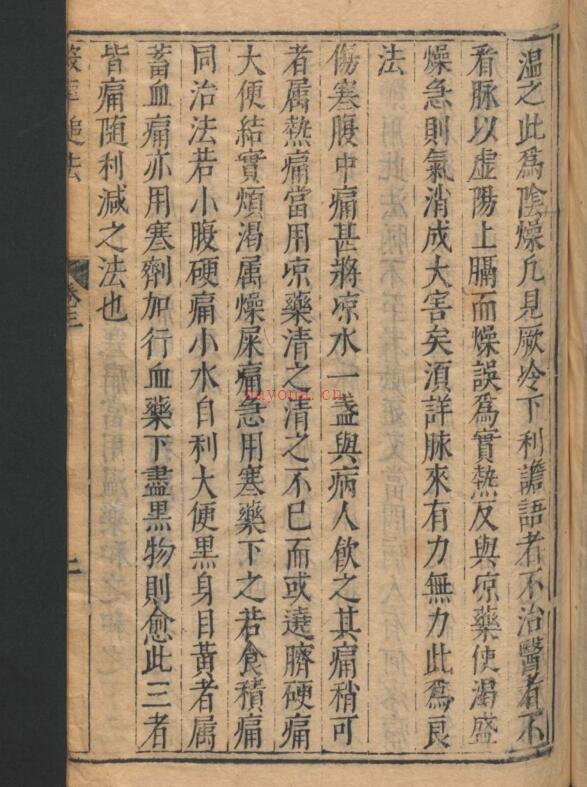 温之此爲陰燥凢見厥冷下利譫語者不治醫者不
看脉以虚陽上膈而燥誤爲實熱反與凉藥使渴盛
燥急則氣消成大害矣湏詳脉來有力無力此爲良
法
傷寒腹中痛甚將凉水一盞與病人飲之其痛稍可
者属熱痛當用凉藥清之清之不已而或遶臍硬痛
大便結實煩渴属燥屎痛急用寒藥下之若食積痛
同治法若小腹硬痛小水自利大便黒身目黃者属
蓄血痛亦用寒劑加行血藥下盡黒物則愈此三者
皆痛随利减之法也
殺車槌法
卷三
二
nayona.cn